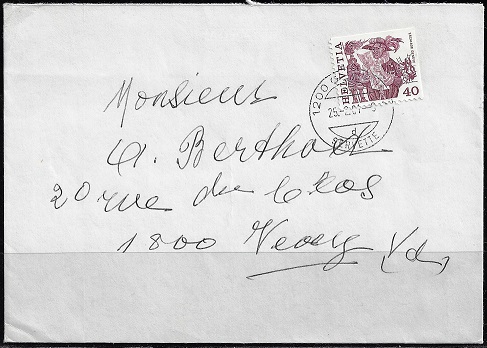 HELVETIA
40
1200
SERVETTE
Monsieur
A. Berthod
20 rue du
1800 Vevey (Vd)